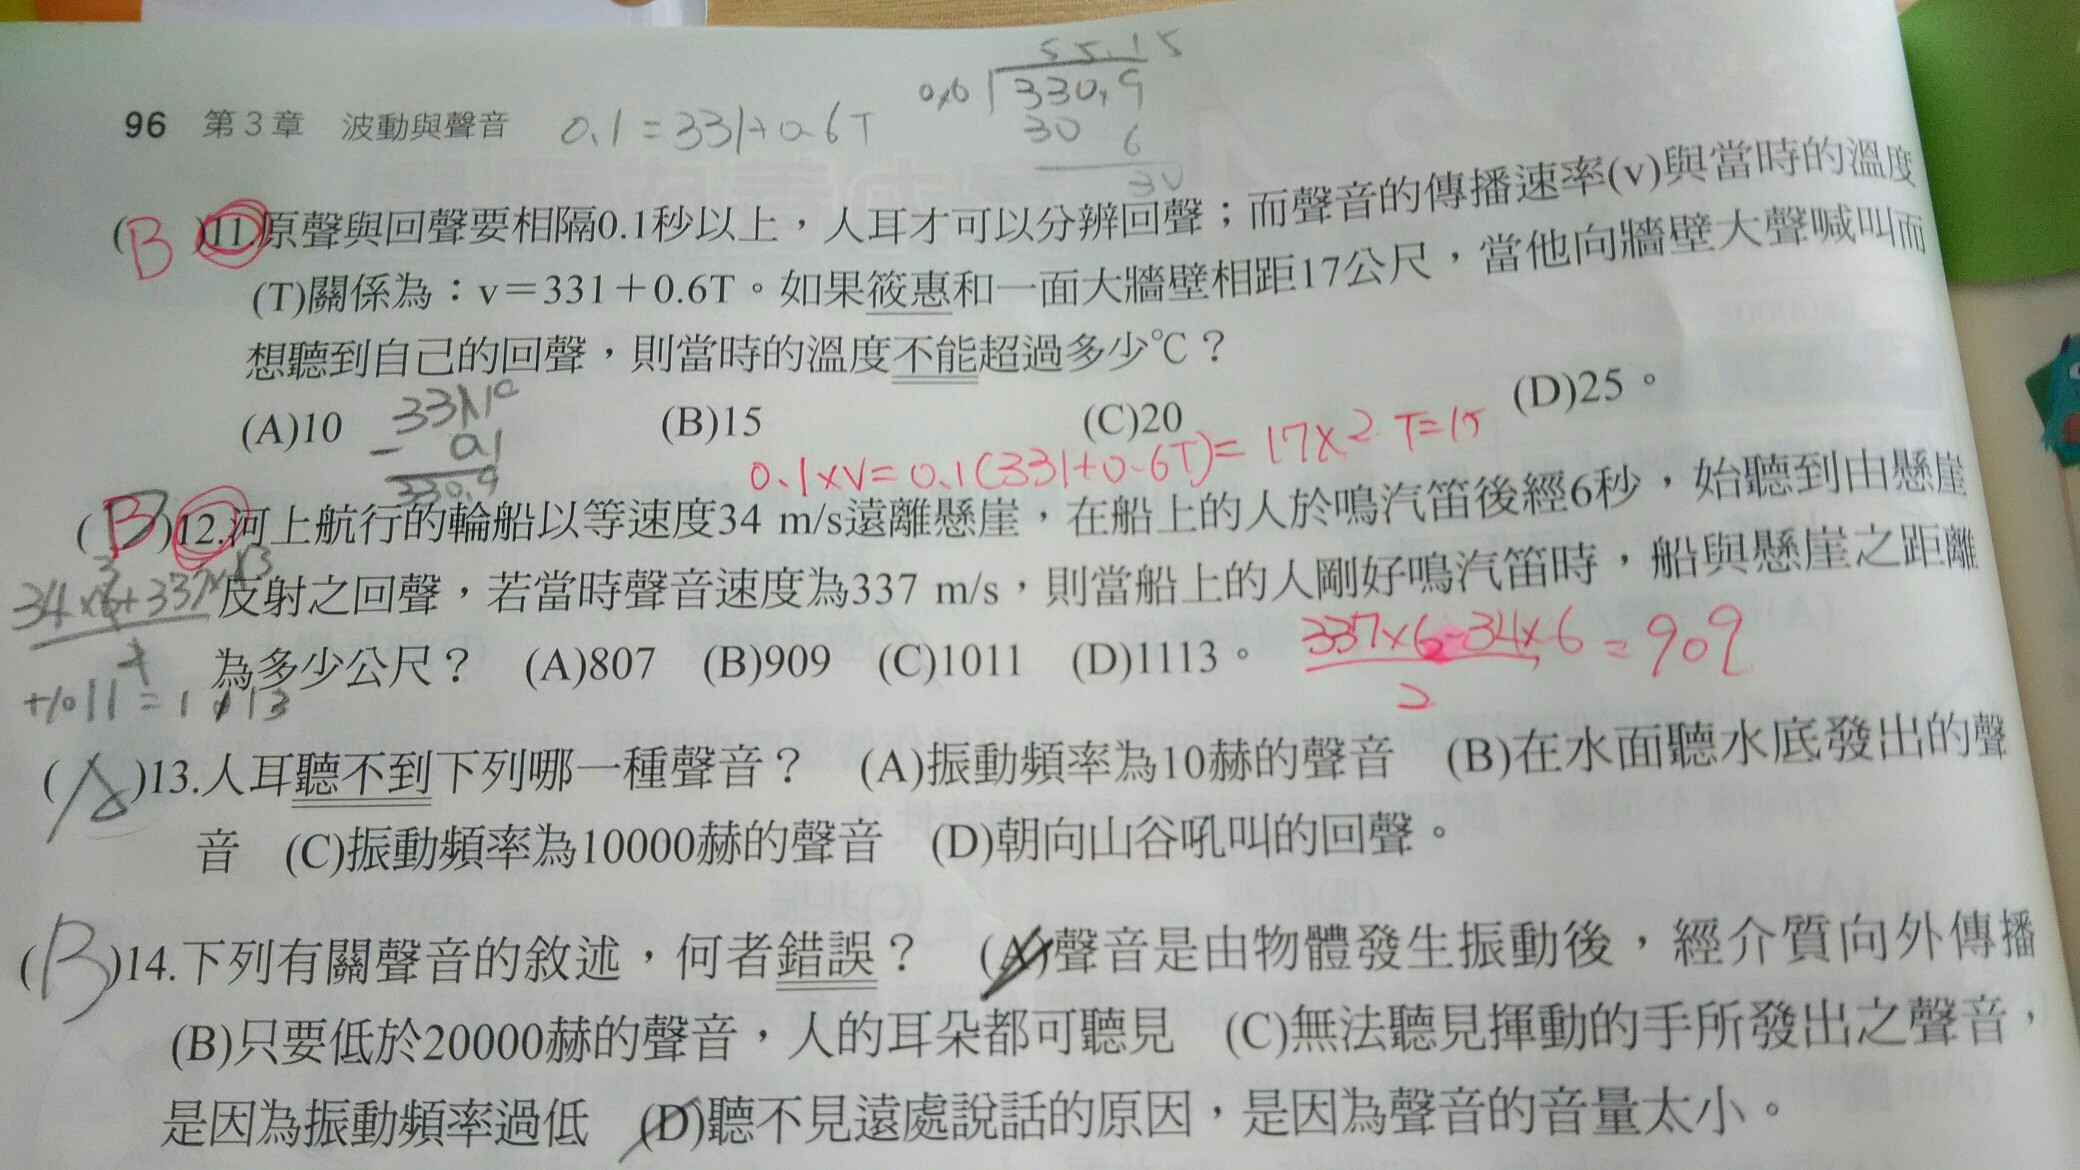 55.15
0.6 330.9
30
6
30
96 第3章 波動與聲音 0.1=331+0.6T
(B)11.原聲與回聲要相隔0.1秒以上，人耳才可以分辨回聲；而聲音的傳播速率(v)與當時的溫度
(T)關係為：v＝331＋0.6T。如果筱惠和一面大牆壁相距17公尺，當他向牆壁大聲喊叫而
想聽到自己的回聲，則當時的溫度不能超過多少℃？
(A)10 (B)15 (C)20 (D)25。
- 0.1
330.9
0.1×v=0.1(331+0.6T)=17×2 T=15
(B)12.河上航行的輪船以等速度34 m/s遠離懸崖，在船上的人於鳴汽笛後經6秒，始聽到由懸崖
反射之回聲，若當時聲音速度為337 m/s，則當船上的人剛好鳴汽笛時，船與懸崖之距離
為多少公尺？ (A)807 (B)909 (C)1011 (D)1113。
337×6-34×6
2
=909
+1011=1113
(A)13.人耳聽不到下列哪一種聲音？ (A)振動頻率為10赫的聲音 (B)在水面聽水底發出的聲
音 (C)振動頻率為10000赫的聲音 (D)朝向山谷吼叫的回聲。
(B)14.下列有關聲音的敘述，何者錯誤？ (A)聲音是由物體發生振動後，經介質向外傳播
(B)只要低於20000赫的聲音，人的耳朵都可聽見 (C)無法聽見揮動的手所發出之聲音，
是因為振動頻率過低 (D)聽不見遠處說話的原因，是因為聲音的音量太小。